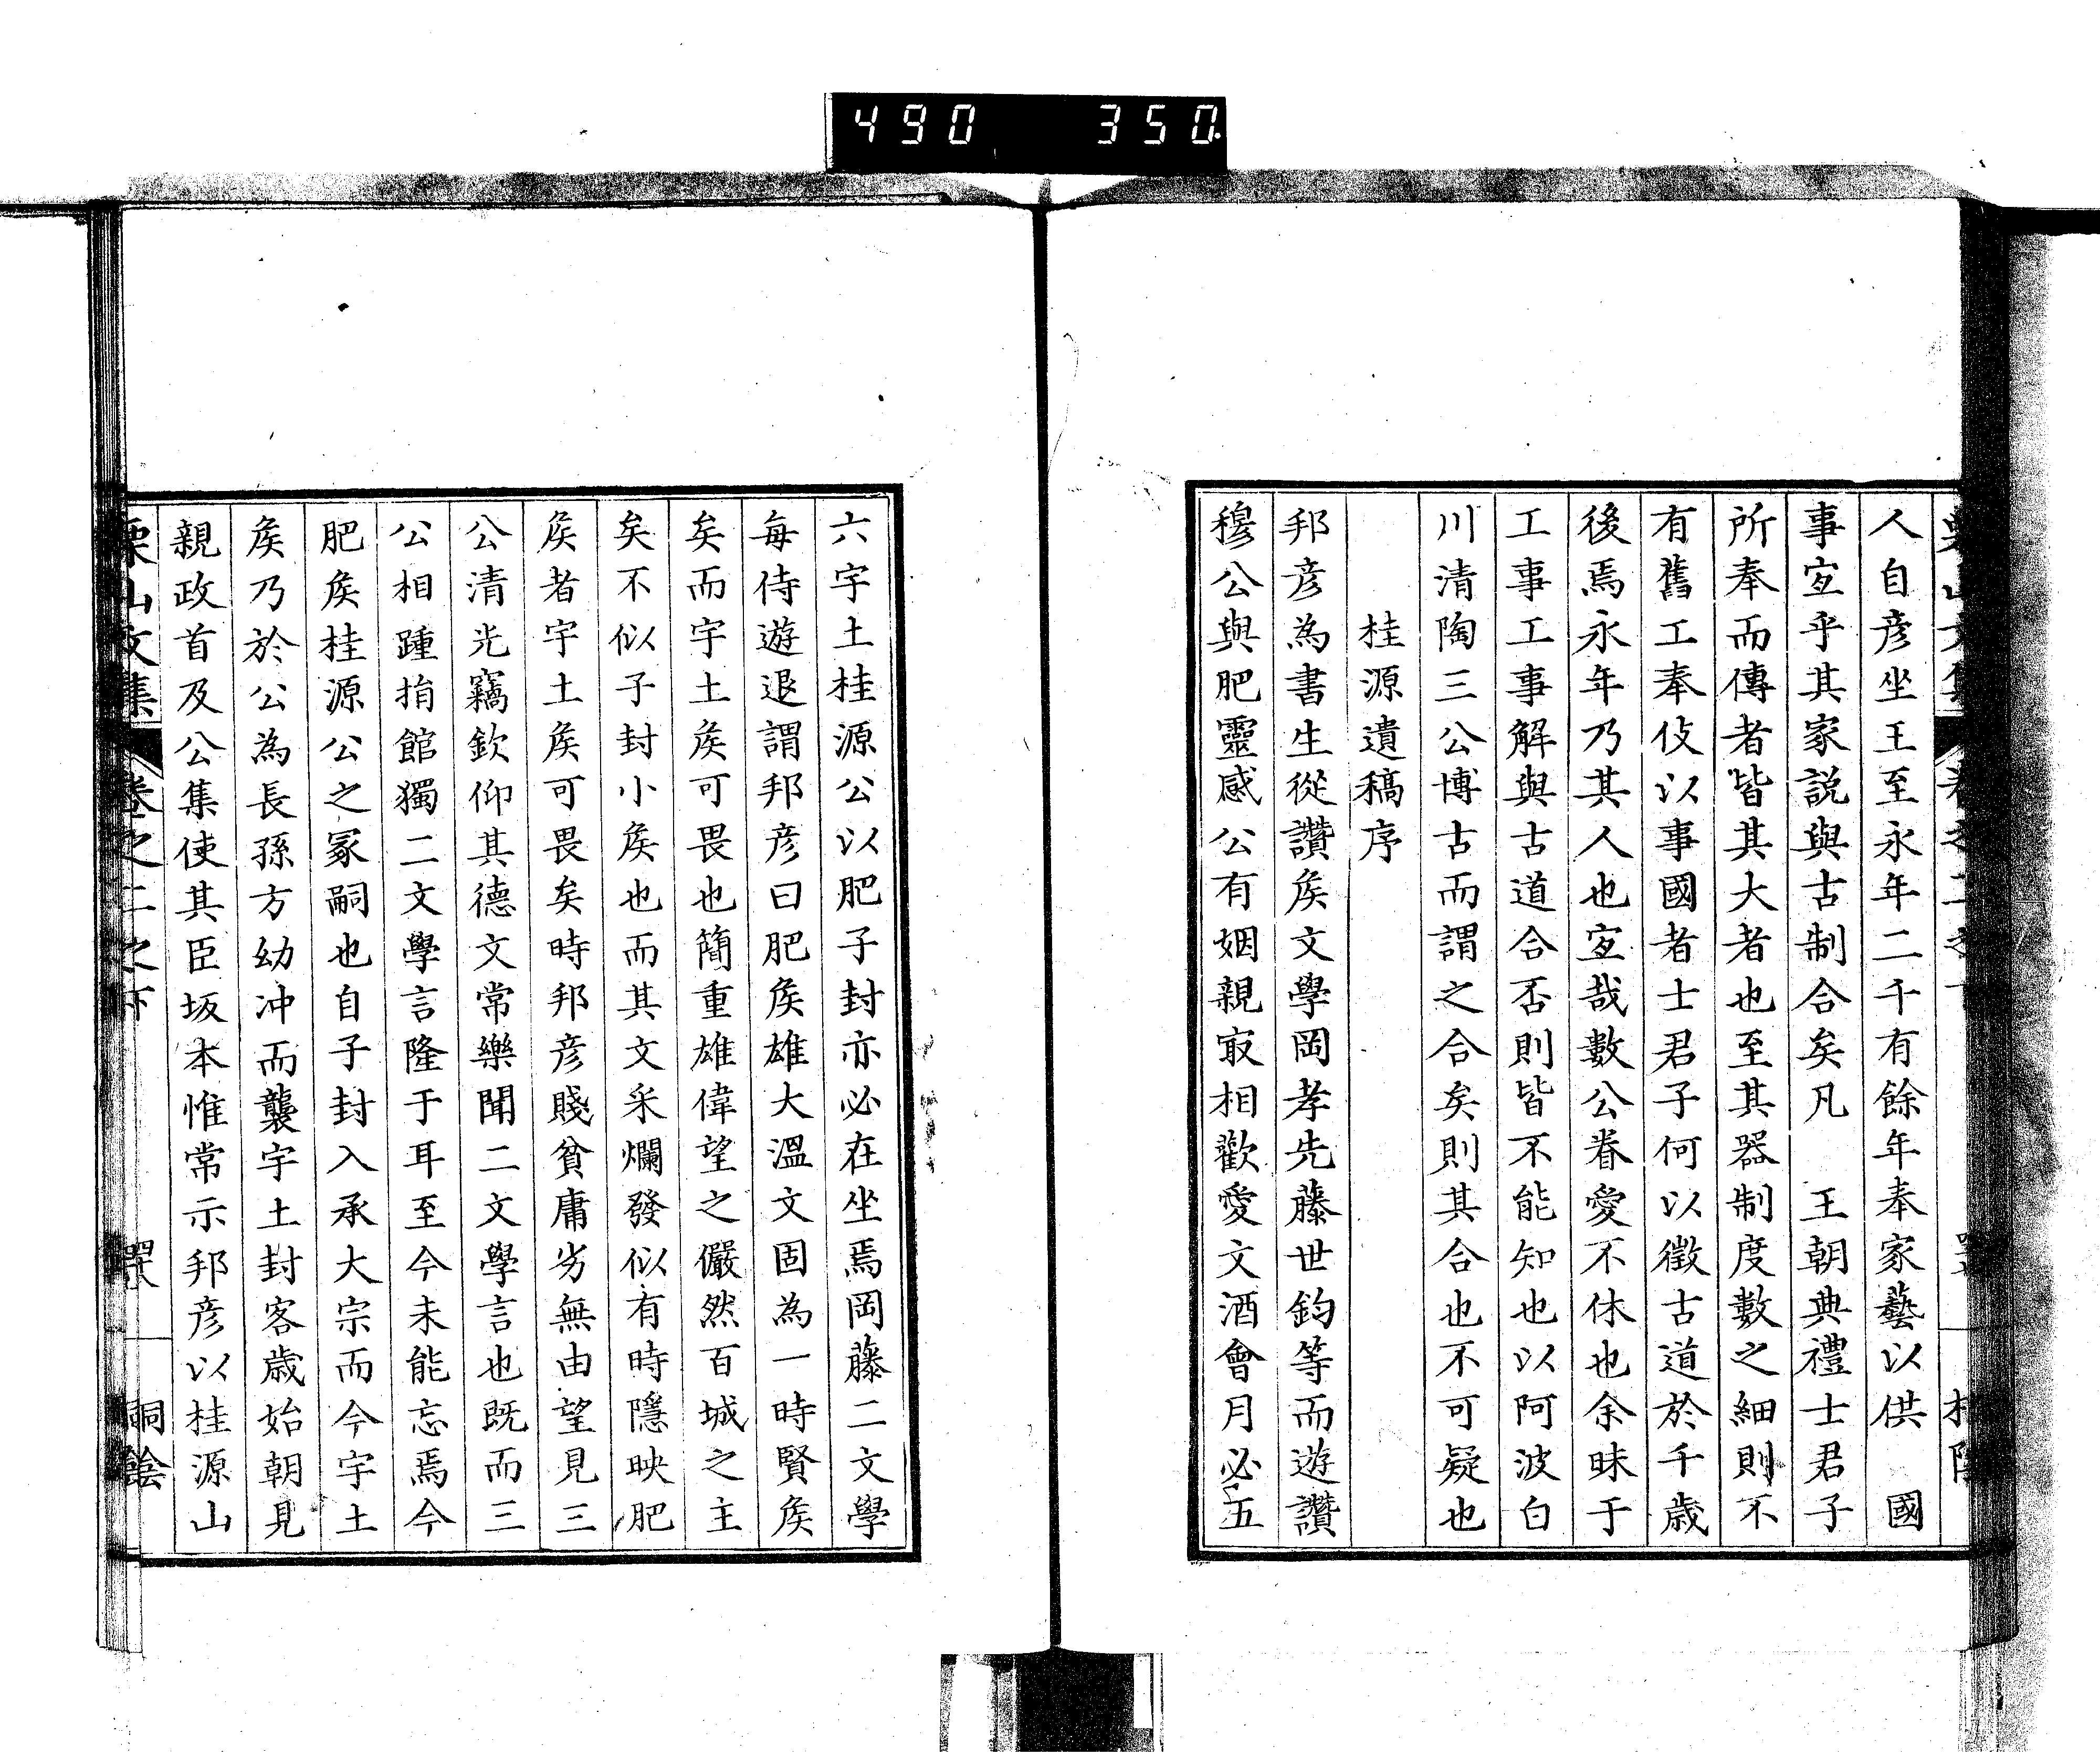 490 350.
人自彦坐王至永年二千有餘年奉家藝以供　國
事宜乎其家説與古制合矣凡　王朝典禮士君子
所奉而傳者皆其大者也至其器制度數之細則不
有舊工奉伎以事國者士君子何以徴古道於千歳
後焉永年乃其人也宜哉數公眷愛不休也余昧于
工事工事解與古道合否則皆不能知也以阿波白
川清陶三公博古而謂之合矣則其合也不可疑也
桂源遺稿序
邦彦為書生從讚矦文學岡孝先藤世鈞等而遊讚
穆公與肥靈感公有姻親㝡相歡愛文酒會月必五
六宇土桂源公以肥子封亦必在坐焉岡藤二文學
每侍遊退謂邦彦曰肥矦雄大溫文固為一時賢矦
矣而宇土矦可畏也簡重雄偉望之儼然百城之主
矣不似子封小矦也而其文采爛發似有時隱映肥
矦者宇土矦可畏矣時邦彦賤貧庸劣無由望見三
公清光竊欽仰其德文常樂聞二文學言也既而三
公相踵捐館獨二文學言隆于耳至今未能忘焉今
肥矦桂源公之冢嗣也自子封入承大宗而今宇土
矦乃於公為長孫方幼冲而襲宇土封客歳始朝見
親政首及公集使其臣坂本惟常示邦彦以桂源山
栗山文集　卷之二之下